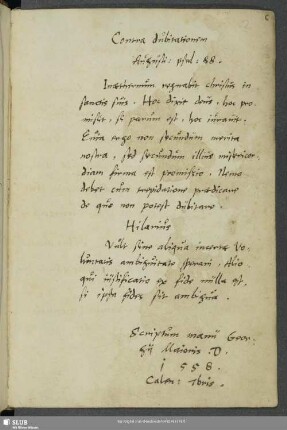 Contra dubitationem
Augusti: psal: 88.
Inæternum regnabit christus in
sanctis suis. Hoc dixit deus, hoc pro
misit, si parum est, hoc iurauit.
Quia ergo non secundum merita
nostra, sed secundum illius misericor
diam firma est promissio. Nemo
debet cum trepidatione prædicare
de quo non potest dubitare.
Hilarius
Vult sine aliqua incertæ vo-
luntatis ambiguitate sperari. Alio
qui iustificatio ex fide nulla est,
si ipsa fides sit ambigua.
Scriptum manu Geor-
gij Maioris D.
1558.
Calen:
SLUB